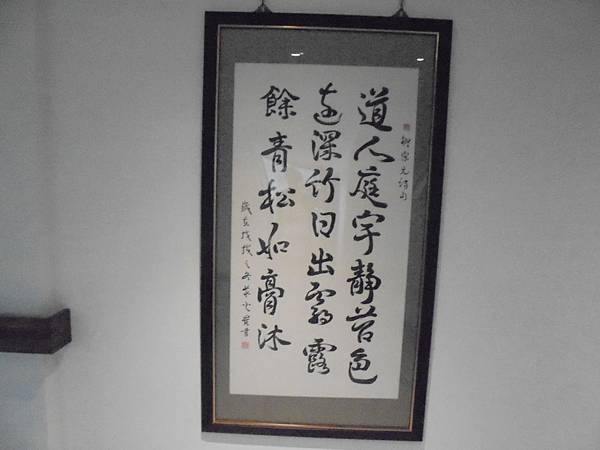 柳宗元詩句
道人庭宇靜苔色
連深竹日出霧露
餘青松如膏沐
歲在戊戌之冬
書